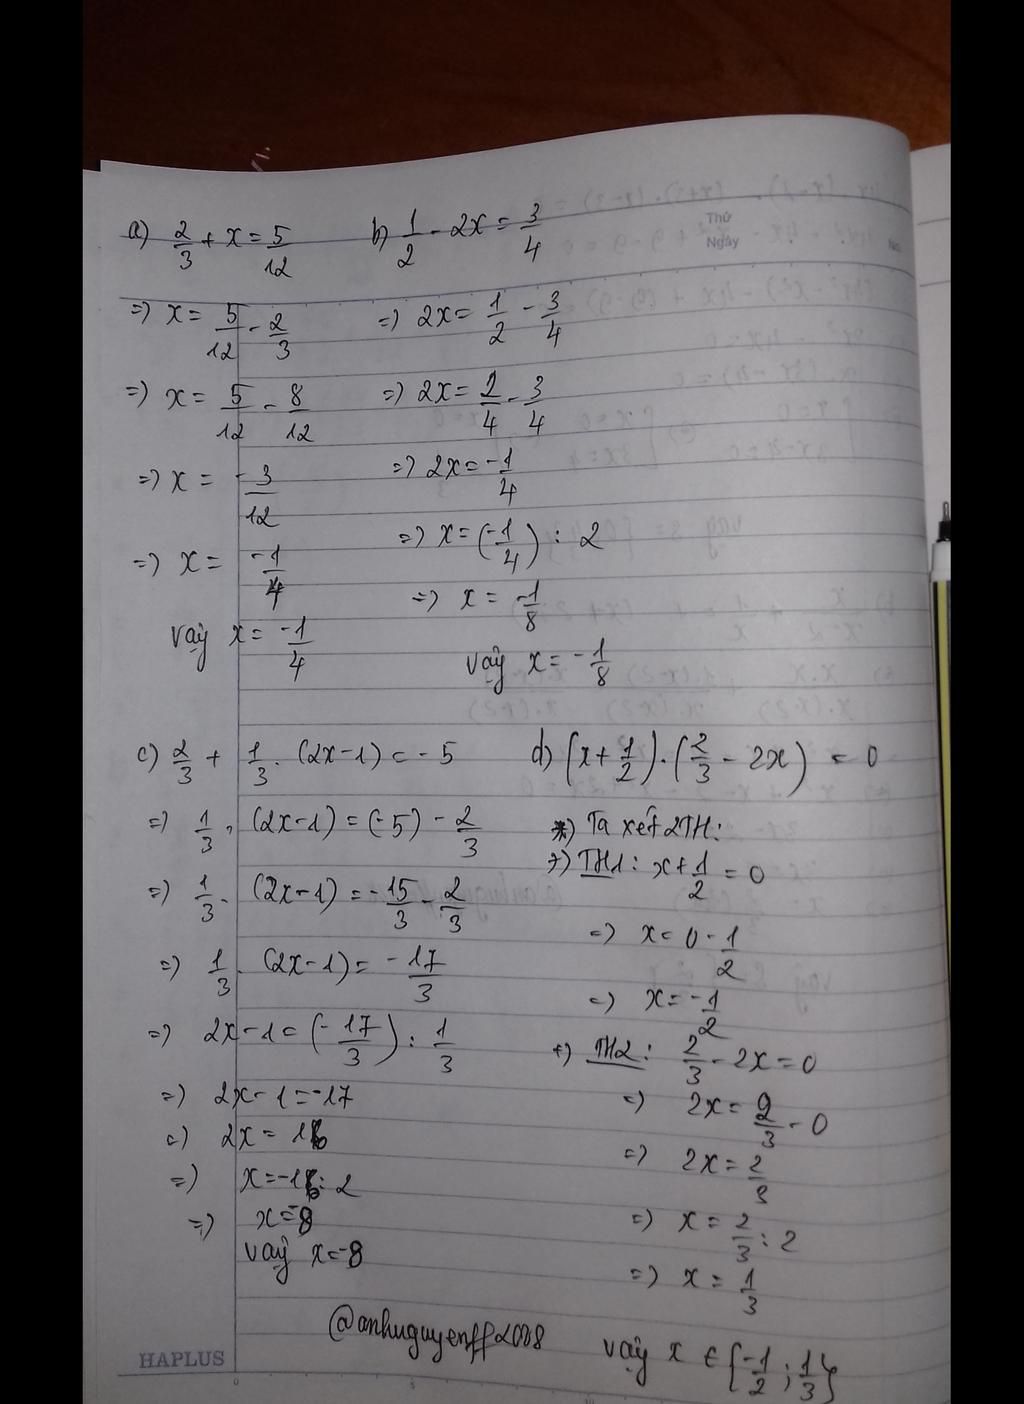 Thứ
Ngày
a) 2/3 + x = 5/12
=> x = 5/12 - 2/3
=> x = 5/12 - 8/12
=> x = -3/12
=> x = -1/4
vậy x = -1/4
b) 1/2 - 2x = 3/4
=> 2x = 1/2 - 3/4
=> 2x = 2/4 - 3/4
=> 2x = -1/4
=> x = (-1/4) : 2
=> x = -1/8
vậy x = -1/8
c) 2/3 + 1/3 . (2x-1) = -5
=> 1/3 . (2x-1) = (-5) - 2/3
=> 1/3 . (2x-1) = -15/3 - 2/3
=> 1/3 . (2x-1) = -17/3
=> 2x-1 = (-17/3) : 1/3
=> 2x-1 = -17
=> 2x = 16
=> x = -16 : 2
=> x = -8
vậy x = -8
d) (x + 1/2) . (2/3 - 2x) = 0
*) Ta xét 2TH:
+) TH1: x + 1/2 = 0
=> x = 0 - 1/2
=> x = -1/2
+) TH2: 2/3 - 2x = 0
=> 2x = 2/3 - 0
=> 2x = 2/3
=> x = 2/3 : 2
=> x = 1/3
vậy x ∈ {-1/2 ; 1/3}
HAPLUS